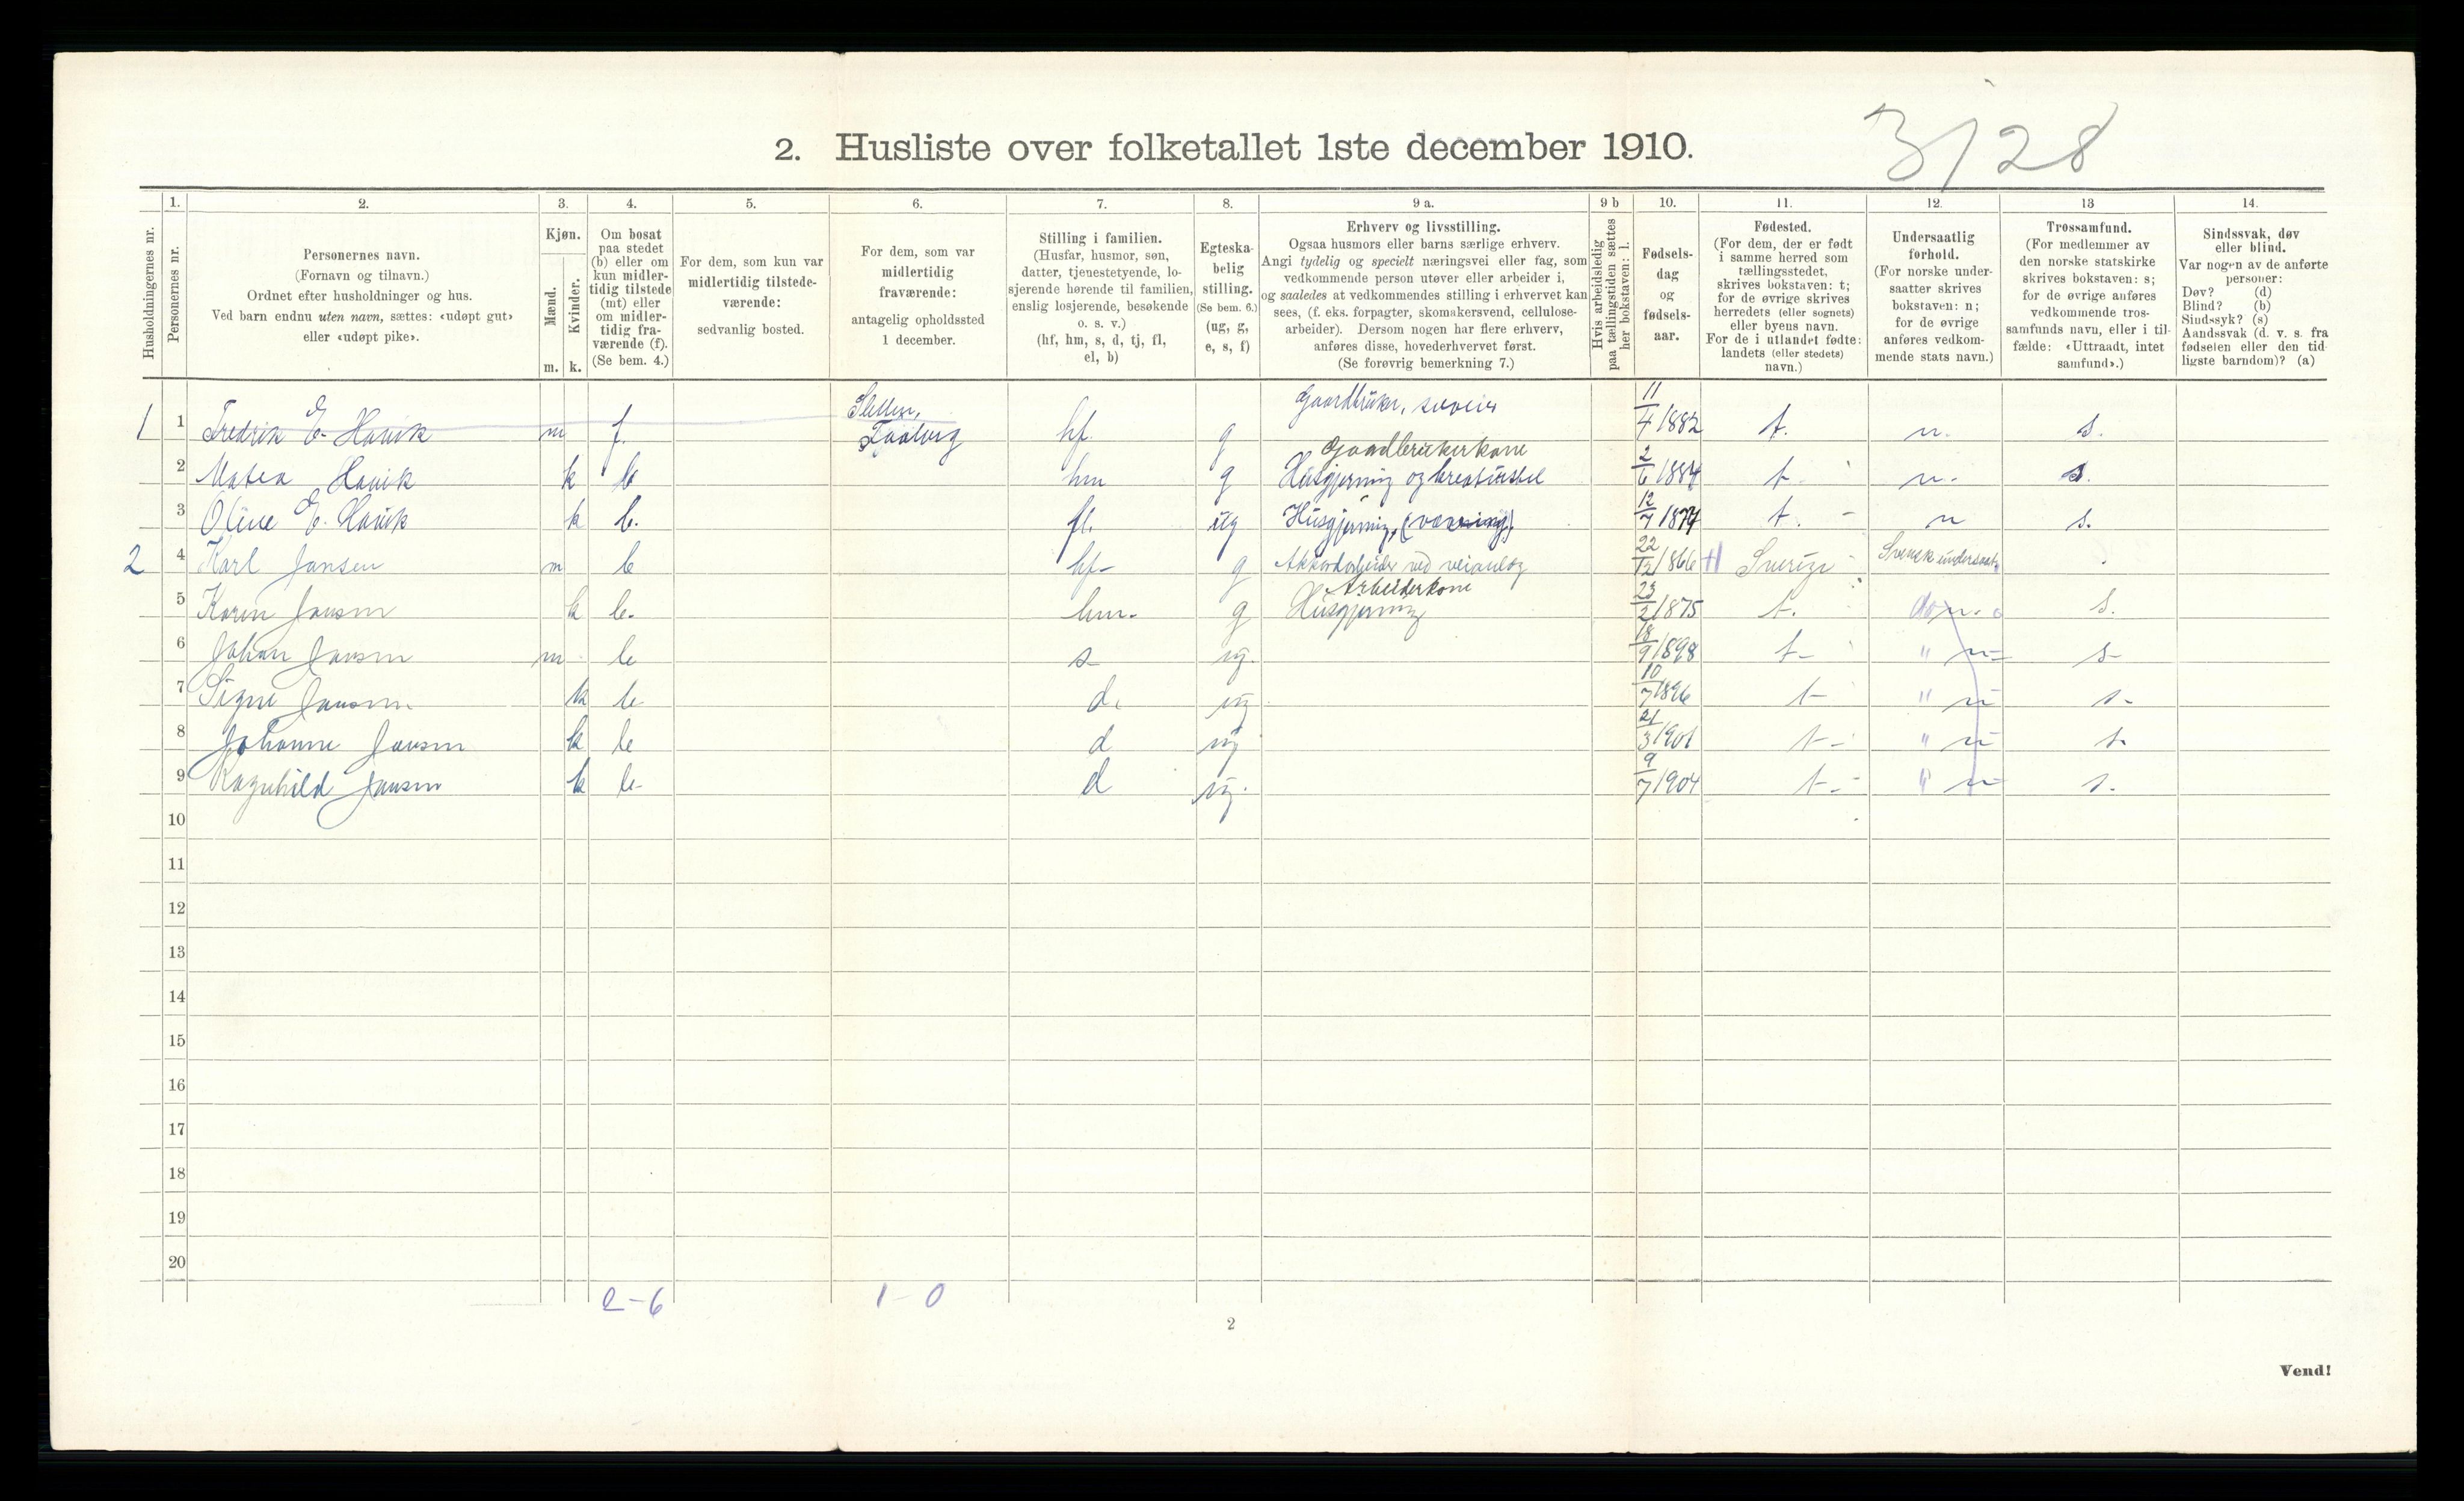 3/28
2. Husliste over folketallet 1ste december 1910.
Husholdningernes nr.
1.
Personernes nr.
2.
Personernes navn.
(Fornavn og tilnavn.)
Ordnet efter husholdninger og hus.
Ved barn endnu uten navn, sættes: «udøpt gut»
eller «udøpt pike».
3.
Kjøn.
Mænd.
Kvinder.
m. k.
4.
Om bosat
paa stedet
(b) eller om
kun midler-
tidig tilstede
(mt) eller
om midler-
tidig fra-
værende (f).
(Se bem. 4.)
5.
For dem, som kun var
midlertidig tilstede-
værende:
sedvanlig bosted.
6.
For dem, som var
midlertidig
fraværende:
antagelig opholdssted
1 december.
7.
Stilling i familien.
(Husfar, husmor, søn,
datter, tjenestetyende, lo-
sjerende hørende til familien,
enslig losjerende, besøkende
o. s. v.)
(hf, hm, s, d, tj, fl,
el, b)
8.
Egteska-
belig
stilling.
(Se bem. 6.)
(ug, g,
e, s, f)
9 a.
Erhverv og livsstilling.
Ogsaa husmors eller barns særlige erhverv.
Angi tydelig og specielt næringsvei eller fag, som
vedkommende person utøver eller arbeider i,
og saaledes at vedkommendes stilling i erhvervet kan
sees, (f. eks. forpagter, skomakersvend, cellulose-
arbeider). Dersom nogen har flere erhverv,
anføres disse, hovederhvervet først.
(Se forøvrig bemerkning 7.)
9 b
Hvis arbeidsledig
paa tællingstiden sættes
her bokstaven: l.
10.
Fødsels-
dag
og
fødsels-
aar.
11.
Fødested.
(For dem, der er født
i samme herred som
tællingsstedet,
skrives bokstaven: t;
for de øvrige skrives
herredets (eller sognets)
eller byens navn.
For de i utlandet fødte:
landets (eller stedets)
navn.)
12.
Undersaatlig
forhold.
(For norske under-
saatter skrives
bokstaven: n;
for de øvrige
anføres vedkom-
mende stats navn.)
13
Trossamfund.
(For medlemmer av
den norske statskirke
skrives bokstaven: s;
for de øvrige anføres
vedkommende tros-
samfunds navn, eller i til-
fælde: «Uttraadt, intet
samfund».)
14.
Sindssvak, døv
eller blind.
Var nogen av de anførte
personer:
Døv? (d)
Blind? (b)
Sindssyk? (s)
Aandssvak (d. v. s. fra
fødselen eller den tid-
ligste barndom)? (a)
1 1 Fredrik E. Hovik m f. Faaberg hf. g Gaardbruker, 11/4 1882 t. n. s.
2 Matea Hovik k b hm g Gaardbrukerkone Husgjerning og kreaturstel 2/6 1884 t. n. s.
3 Oline E. Hovik k b. fl. ug Husgjerning, 12/7 1874 t. n s.
2 4 Karl Jansen m b hf g Akkordarbeider ved veianlæg 22/12 1866 Sverige Svensk undersaat
5 Karen Jansen k b. hm. g Arbeiderkone Husgjerning 23/2 1875 t. do n. s.
6 Johan Jansen m b s ug. 18/9 1898 t " n s
7 Signe Jansen k b d. ug 10/7 1896 t " n s
8 Johanne Jansen k b d ug 21/3 1901 t " n s
9 Ragnhild Jansen k b d ug. 9/7 1904 t " n s.
10
11
12
13
14
15
16
17
18
19
20
2-6 1-0
2
Vend!